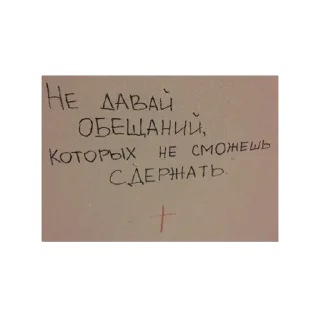 Не давай
обещаний,
которых не сможешь
сдержать.